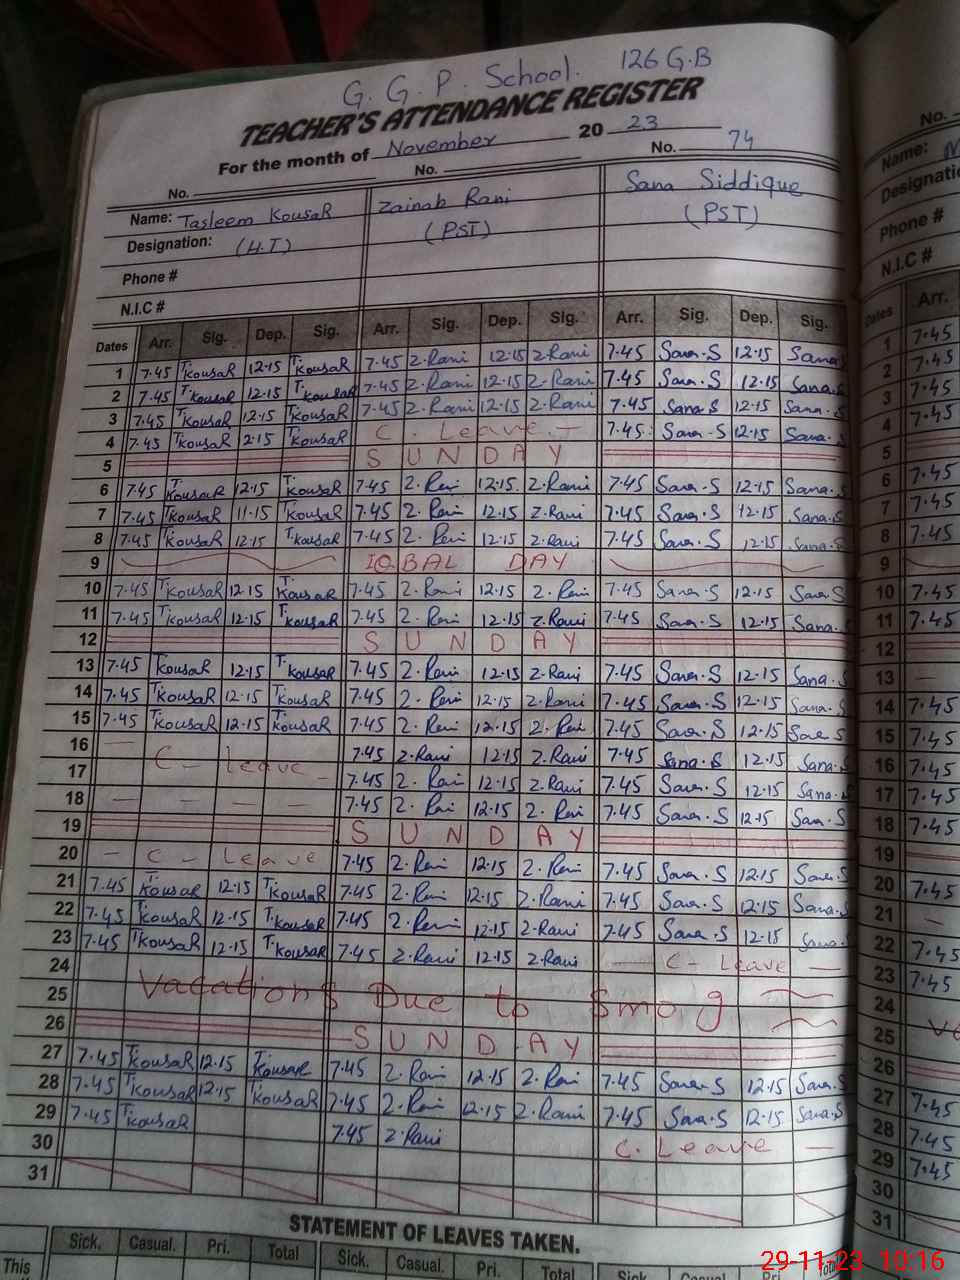 G. G. P. School. 126 G.B
TEACHER'S ATTENDANCE REGISTER
For the month of November 20 23
No. No. No. 74
Name: Tasleem KousaR Zainab Rani Sana Siddique
Designation: (H.T) (PST) (PST)
Phone #
N.I.C #
Dates Arr. Sig. Dep. Sig. Arr. Sig. Dep. Sig. Arr. Sig. Dep. Sig.
1 7.45 T.kousaR 12.15 T.kousaR 7.45 Z.Rani 12.15 Z.Rani 7.45 Sana.S 12.15 Sana.S
2 7.45 T.kousaR 12.15 T.kousaR 7.45 Z.Rani 12.15 Z.Rani 7.45 Sana.S 12.15 Sana.S
3 7.45 T.kousaR 12.15 T.kousaR 7.45 Z.Rani 12.15 Z.Rani 7.45 Sana S 12.15 Sana.S
4 7.45 T.kousaR 2.15 T.kousaR C. Leave - 7.45 Sana.S 12.15 Sana.S
5 SUNDAY
6 7.45 T.kousaR 12.15 T.kousaR 7.45 Z.Rani 12.15 Z.Rani 7.45 Sana.S 12.15 Sana.S
7 7.45 T.kousaR 11.15 T.kousaR 7.45 Z.Rani 12.15 Z.Rani 7.45 Sana.S 12.15 Sana.S
8 7.45 T.kousaR 12.15 T.kousaR 7.45 Z.Rani 12.15 Z.Rani 7.45 Sana.S 12.15 Sana.S
9 IQBAL DAY
10 7.45 T.kousaR 12.15 T.kousaR 7.45 Z.Rani 12.15 Z.Rani 7.45 Sana.S 12.15 Sana.S
11 7.45 T.kousaR 12.15 T.kousaR 7.45 Z.Rani 12.15 Z.Rani 7.45 Sana.S 12.15 Sana.S
12 SUNDAY
13 7.45 T.kousaR 12.15 T.kousaR 7.45 Z.Rani 12.15 Z.Rani 7.45 Sana.S 12.15 Sana.S
14 7.45 T.kousaR 12.15 T.kousaR 7.45 Z.Rani 12.15 Z.Rani 7.45 Sana.S 12.15 Sana.S
15 7.45 T.kousaR 12.15 T.kousaR 7.45 Z.Rani 12.15 Z.Rani 7.45 Sana.S 12.15 Sana S
16 - 7.45 Z.Rani 12.15 Z.Rani 7.45 Sana.S 12.15 Sana.S
17 C - Leave - 7.45 Z.Rani 12.15 Z.Rani 7.45 Sana.S 12.15 Sana.S
18 - - - - 7.45 Z.Rani 12.15 Z.Rani 7.45 Sana.S 12.15 Sana.S
19 SUNDAY
20 - C - Leave 7.45 Z.Rani 12.15 Z.Rani 7.45 Sana.S 12.15 Sana.S
21 7.45 T.kousaR 12.15 T.kousaR 7.45 Z.Rani 12.15 Z.Rani 7.45 Sana.S 12.15 Sana.S
22 7.45 T.kousaR 12.15 T.kousaR 7.45 Z.Rani 12.15 Z.Rani 7.45 Sana.S 12.15 Sana.S
23 7.45 T.kousaR 12.15 T.kousaR 7.45 Z.Rani 12.15 Z.Rani - C - Leave -
24
25 Vacations Due to Smog
26 SUNDAY
27 7.45 T.kousaR 12.15 T.kousaR 7.45 Z.Rani 12.15 Z.Rani 7.45 Sana.S 12.15 Sana.S
28 7.45 T.kousaR 12.15 T.kousaR 7.45 Z.Rani 12.15 Z.Rani 7.45 Sana.S 12.15 Sana.S
29 7.45 T.kousaR 7.45 Z.Rani C. Leave -
30
31
STATEMENT OF LEAVES TAKEN.
Sick. Casual. Pri. Total Sick. Casual. Pri. Total Sick Casual. Pri. Total
This
No.
Name:
Designatio
Phone #
N.I.C #
Dates Arr.
1 7.45
2 7.45
3 7.45
4 7.45
5
6 7.45
7 7.45
8 7.45
9
10 7.45
11 7.45
12
13 -
14 7.45
15 7.45
16 7.45
17 7.45
18 7.45
19
20 7.45
21 -
22 7.45
23 7.45
24
25
26
27 7.45
28 7.45
29 7.45
30
31
29-11-23 10:16